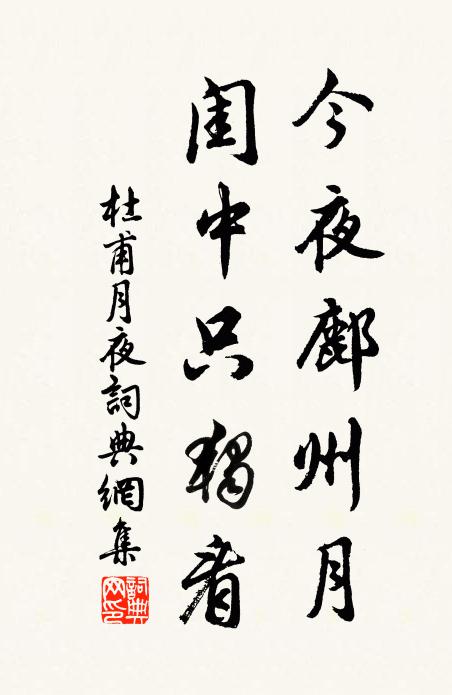 今夜鄜州月
閨中只獨看
杜甫月夜詞典網集
詞典
网印